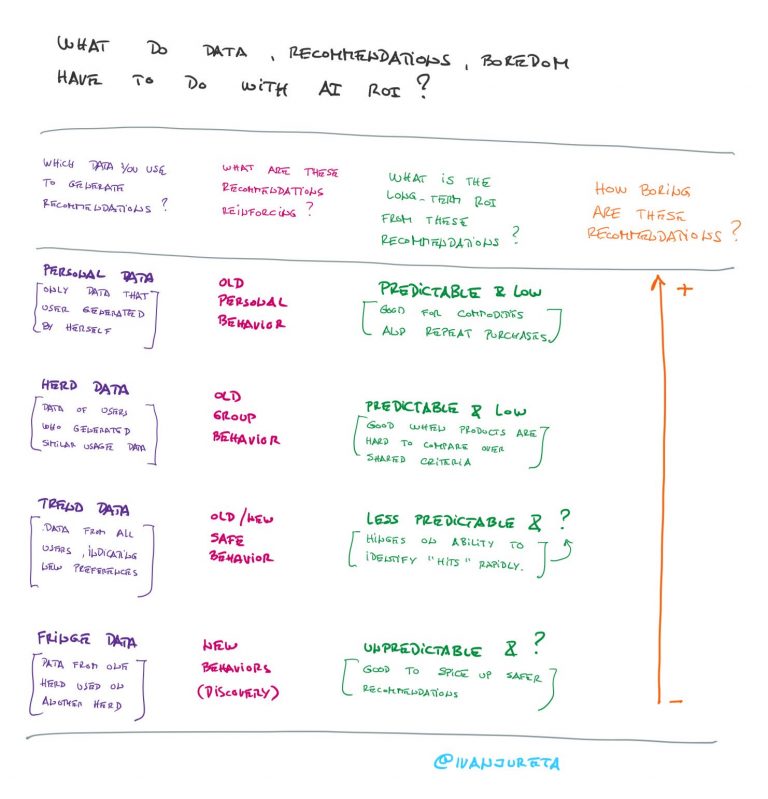 WHAT DO DATA, RECOMMENDATIONS, BOREDOM
HAVE TO DO WITH AI ROI?
WHICH DATA YOU USE
TO GENERATE
RECOMMENDATIONS?
WHAT ARE THESE
RECOMMENDATIONS
REINFORCING?
WHAT IS THE
LONG-TERM ROI
FROM THESE
RECOMMENDATIONS?
HOW BORING
ARE THESE
RECOMMENDATIONS?
PERSONAL DATA
ONLY DATA THAT
USER GENERATED
BY HERSELF
OLD
PERSONAL
BEHAVIOR
PREDICTABLE & LOW
GOOD FOR COMMODITIES
AND REPEAT PURCHASES.
+
HERD DATA
DATA OF USERS
WHO GENERATED
SIMILAR USAGE DATA
OLD
GROUP
BEHAVIOR
PREDICTABLE & LOW
GOOD WHEN PRODUCTS ARE
HARD TO COMPARE OVER
SHARED CRITERIA
TREND DATA
DATA FROM ALL
USERS, INDICATING
NEW PREFERENCES
OLD/NEW
SAFE
BEHAVIOR
LESS PREDICTABLE & ?
HINGES ON ABILITY TO
IDENTIFY "HITS" RAPIDLY.
FRINGE DATA
DATA FROM ONE
HERD USED ON
ANOTHER HERD
NEW
BEHAVIORS
(DISCOVERY)
UNPREDICTABLE & ?
GOOD TO SPICE UP SAFER
RECOMMENDATIONS
-
@IVANJURETA